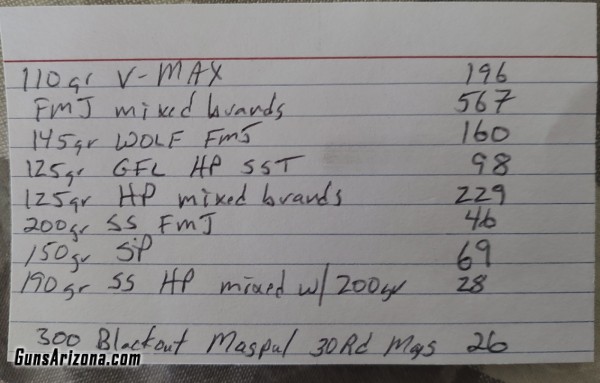 110gr V-MAX 196
FMJ mixed brands 567
145gr WOLF FMJ 160
125gr GFL HP SST 98
125gr HP mixed brands 229
200gr SS FMJ 46
150gr SP 69
190gr SS HP mixed w/ 200gr 28
300 Blackout Magpul 30Rd Mags 26
GunsArizona.com